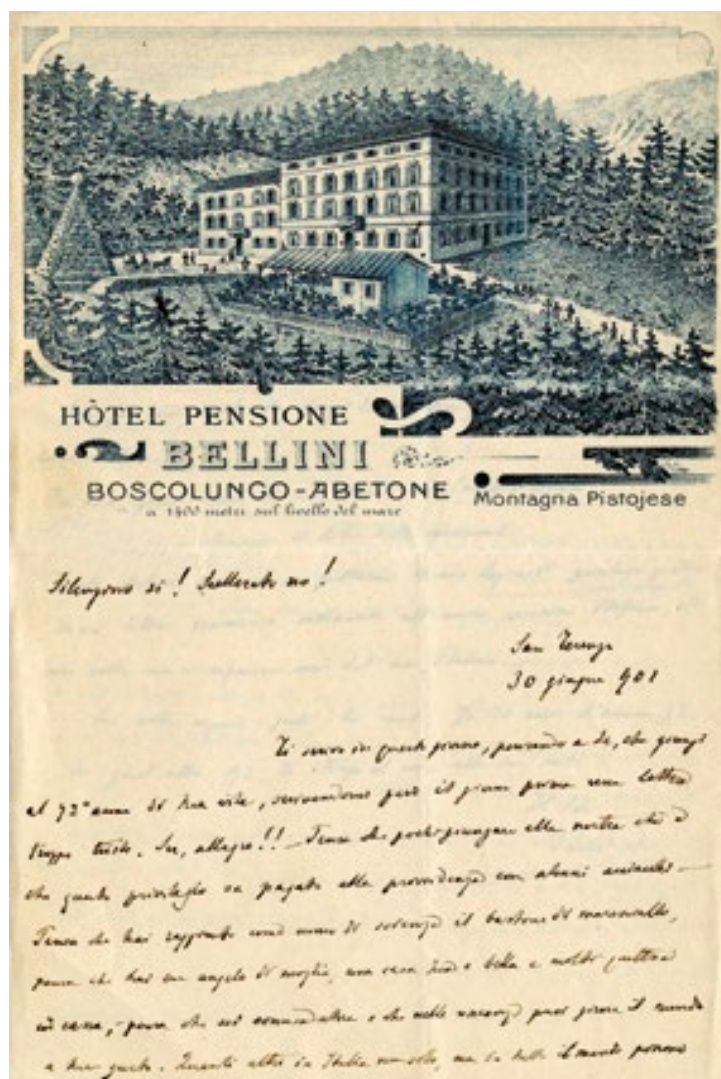 HÔTEL PENSIONE
BELLINI
BOSCOLUNGO-ABETONE
Montagna Pistojese
a 1400 metri sul livello del mare
Silenzioso si! no!
San Terenzo
30 giugno 901
Ti scrivo in questo giorno, pensando a te, che giungi
al 72° anno di tua vita, scrivendomi però il giorno prima una lettera
troppo triste. Su, allegro!! – Pensa che pochi giungono alla nostra età e
che questo privilegio va pagato alla provvidenza con alcuni acciacchi –
Pensa che hai raggiunto come uomo di scienza il bastone di maresciallo,
pensa che hai un angelo di moglie, una casa bella e molti quattrini
in cassa, – pensa che sei commendatore e che nelle vacanze puoi girare il mondo
a tuo gusto. Quanti altri in Italia non solo, ma in tutto il mondo possono